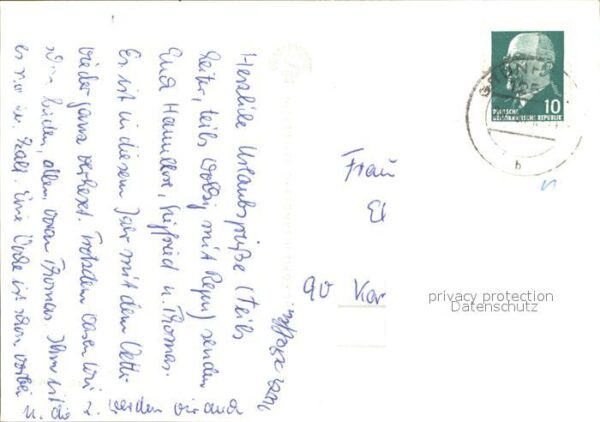 Herzliche Urlaubsgrüße (teils
heiter, teils wolkig mit Regen) senden
Euch Hannelore, Siegfried u. Thomas.
Es ist in diesem Jahr mit dem Wetter
wieder ganz verhext. Trotzdem lassen wir
baden, allem voran Thomas. Ihm ist
es nie zu kalt. Eine Woche ist schon vorbei
u. die
werden wir auch
Frau
El
90 Kar
10
DEUTSCHE
DEMOKRATISCHE REPUBLIK
b
privacy protection
Datenschutz